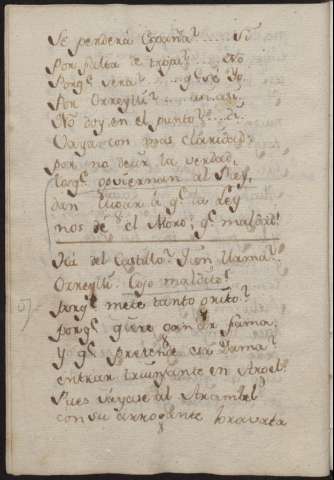 Se perderá España? .... Si
Por falta de tropa? ... No
Porq.e será? .... q.e se Yo.
Por Orreylli? ... an. asi.
No doy en el punto? ... Si.
Vaya con mas claridad?
por no decir la verdad,
los q.e goviernan al Rey,
dan lugar a q.e la Ley
nos dé el Moro; q.e maldad!
Ha del Castillo? Quien llama?
Orreylli. Cojo maldito!
porq.e mete tanto grito?
porq.e quiere ganar fama;
Y q.e pretende esa Dama?
entrar triunfante en Argel.
Pues vayase al Arambel
con su arrogante bravata